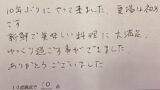 10年ぶりにやって来ました。夏場は初め
です
新鮮で美味しい料理に大満足。
ゆっくり過ごす事ができました。
ありがとうございました
10